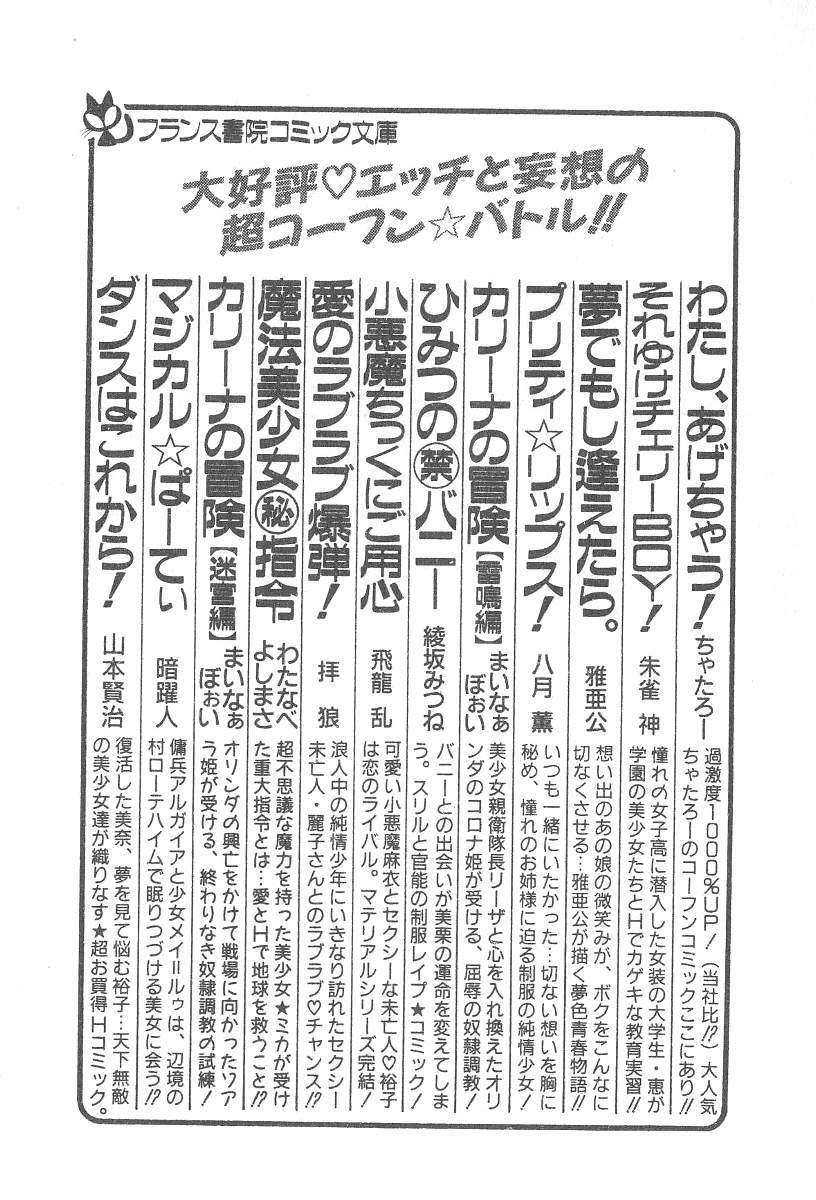 フランス書院コミック文庫
大好評♡エッチと妄想の
超コーフン☆バトル!!
わたし、あげちゃう！
ちゃたろー
過激度1000%UP！（当社比!?）大人気
ちゃたろーのコーフンコミックここにあり!!
それゆけチェリーBOY！
朱雀 神
憧れの女子高に潜入した女装の大学生・恵が
学園の美少女たちとHでカゲキな教育実習!!
夢でもし逢えたら。
雅亜公
想い出のあの娘の微笑みが、ボクをこんなに
切なくさせる…雅亜公が描く夢色青春物語!!
プリティ☆リップス！
八月 薫
いつも一緒にいたかった…切ない想いを胸に
秘め、憧れのお姉様に迫る制服の純情少女！
カリーナの冒険【雷鳴編】
まいなぁ
ぼぉい
美少女親衛隊長リーザと心を入れ換えたオリ
ンダのコロナ姫が受ける、屈辱の奴隷調教！
ひみつの㊙バニー
綾坂みつね
バニーとの出会いが美栗の運命を変えてしま
う。スリルと官能の制服レイプ★コミック！
小悪魔ちっくにご用心
飛龍 乱
可愛い小悪魔麻衣とセクシーな未亡人♡裕子
は恋のライバル。マテリアルシリーズ完結！
愛のラブラブ爆弾！
拝 狼
浪人中の純情少年にいきなり訪れたセクシー
未亡人・麗子さんとのラブラブ♡チャンス!?
魔法美少女㊙指令
わたなべ
よしまさ
超不思議な魔力を持った美少女★ミカが受け
た重大指令とは…愛とHで地球を救うこと!?
カリーナの冒険【迷宮編】
まいなぁ
ぼぉい
オリンダの興亡をかけて戦場に向かったソア
ラ姫が受ける、終わりなき奴隷調教の試練！
マジカル☆ぱーてぃ
暗躍人
傭兵アルガイアと少女メイ＝ルゥは、辺境の
村ローテハイムで眠りつづける美女に会う!?
ダンスはこれから！
山本賢治
復活した美奈、夢を見て悩む裕子…天下無敵
の美少女達が織りなす★超お買得Hコミック。